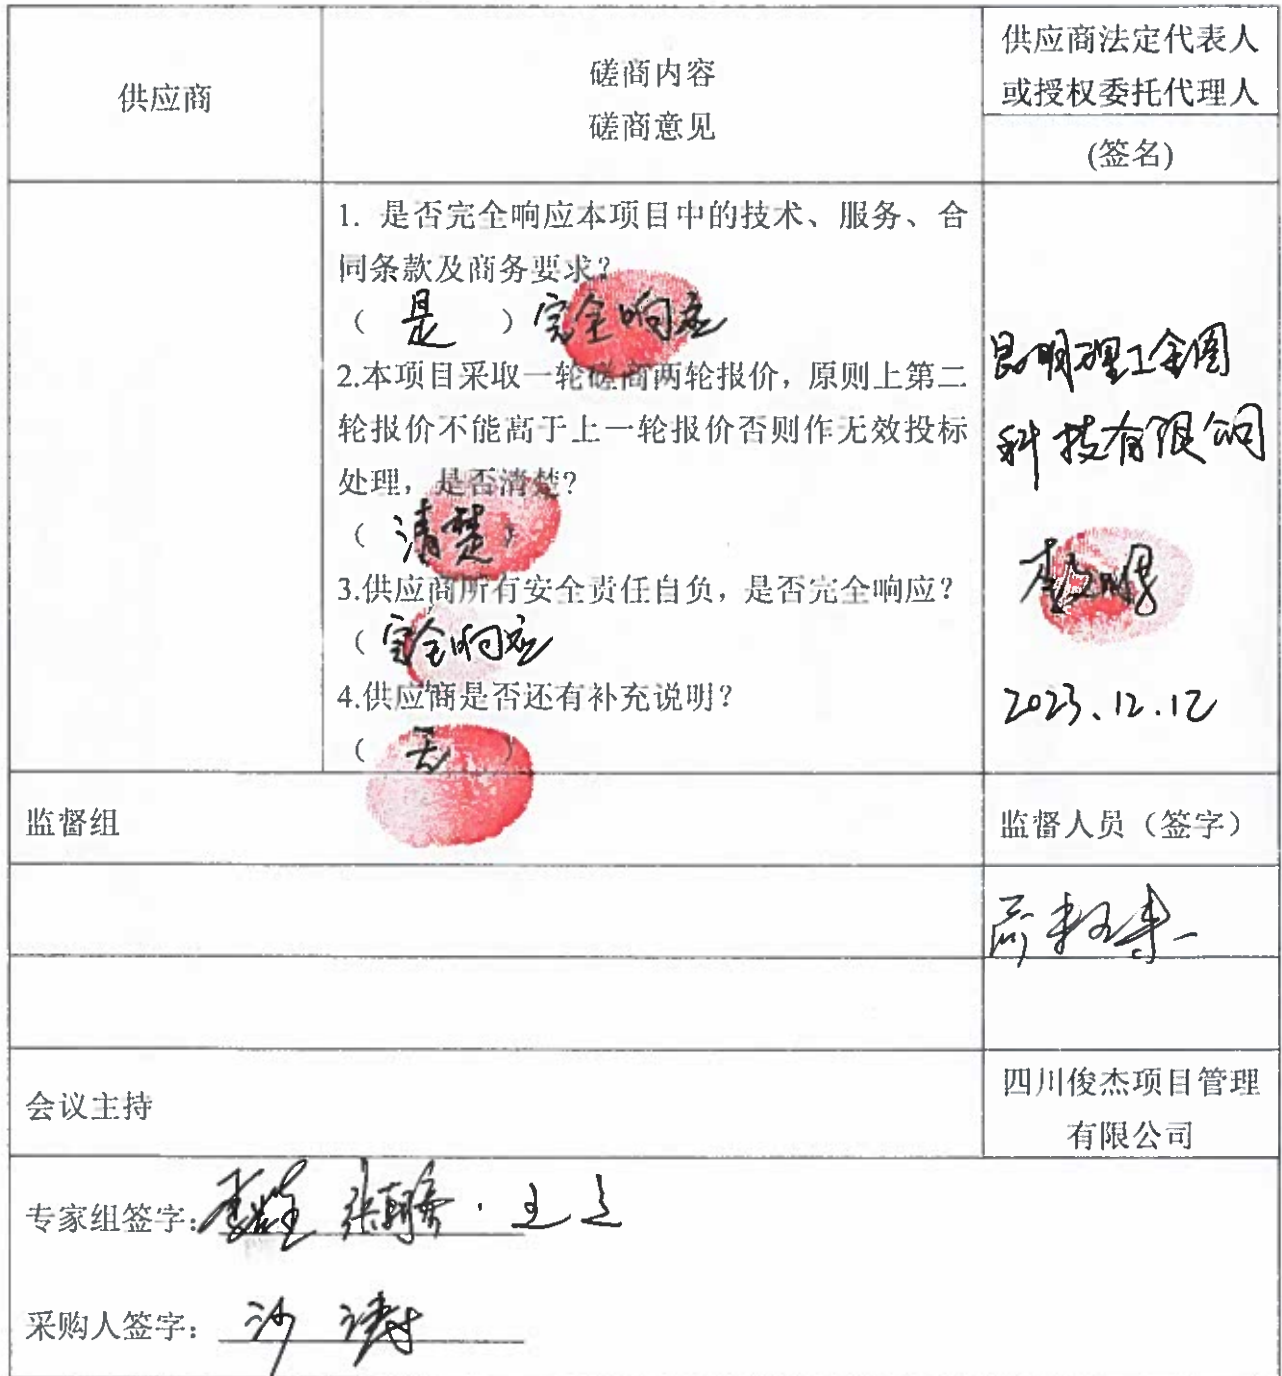 供应商
磋商内容
磋商意见
供应商法定代表人
或授权委托代理人
(签名)
1. 是否完全响应本项目中的技术、服务、合
同条款及商务要求?
（ 是 ）完全响应
2.本项目采取一轮磋商两轮报价，原则上第二
轮报价不能高于上一轮报价否则作无效投标
处理，是否清楚?
（ 清楚 ）
3.供应商所有安全责任自负，是否完全响应?
（ 完全响应
4.供应商是否还有补充说明?
（ 无 ）
昆明理工金图
科技有限公司
2023.12.12
监督组
监督人员（签字）
会议主持
四川俊杰项目管理
有限公司
专家组签字:
采购人签字: 沙涛